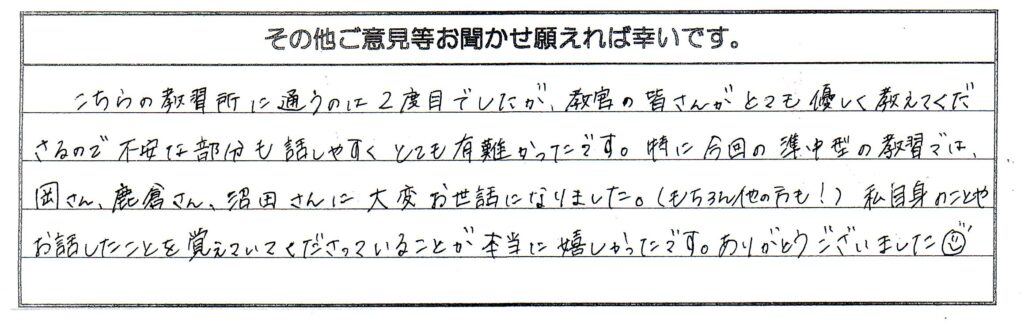 その他ご意見等お聞かせ願えれば幸いです。
こちらの教習所に通うのは2度目でしたが、教官の皆さんがとても優しく教えてくだ
さるので不安な部分も話しやすくとても有難かったです。特に今回の準中型の教習では、
岡さん、鹿倉さん、沼田さんに大変お世話になりました。(もちろん他の方も!) 私自身のことや
お話したことを覚えていてくださっていることが本当に嬉しかったです。ありがとうございました☺